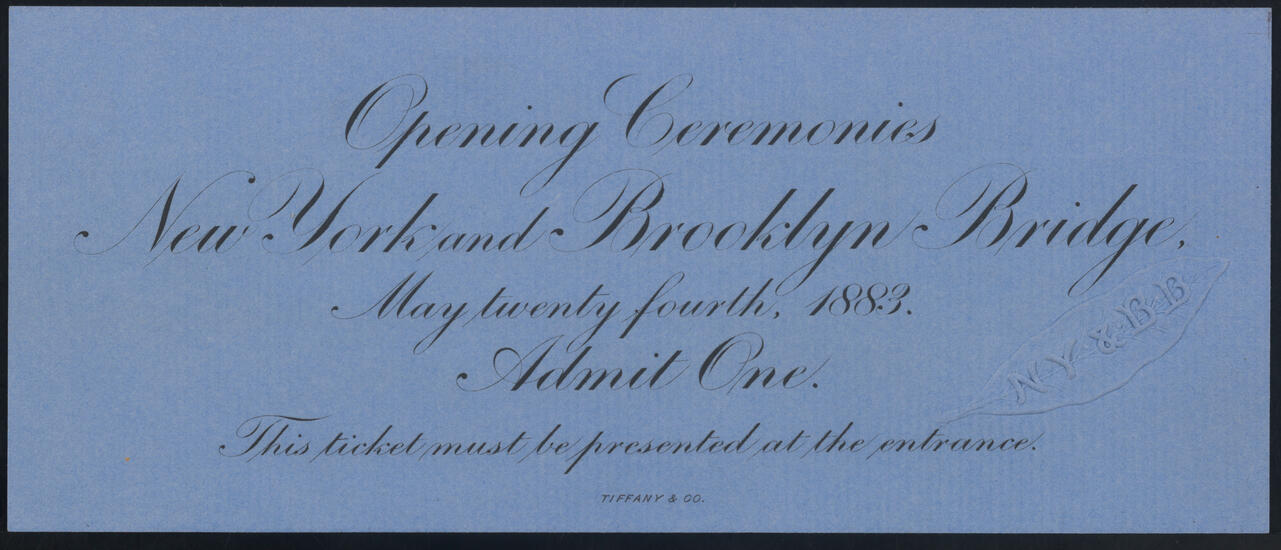 Opening Ceremonies
New York and Brooklyn Bridge,
May twenty fourth, 1883.
Admit One.
This ticket must be presented at the entrance.
TIFFANY & CO.
NY & BB